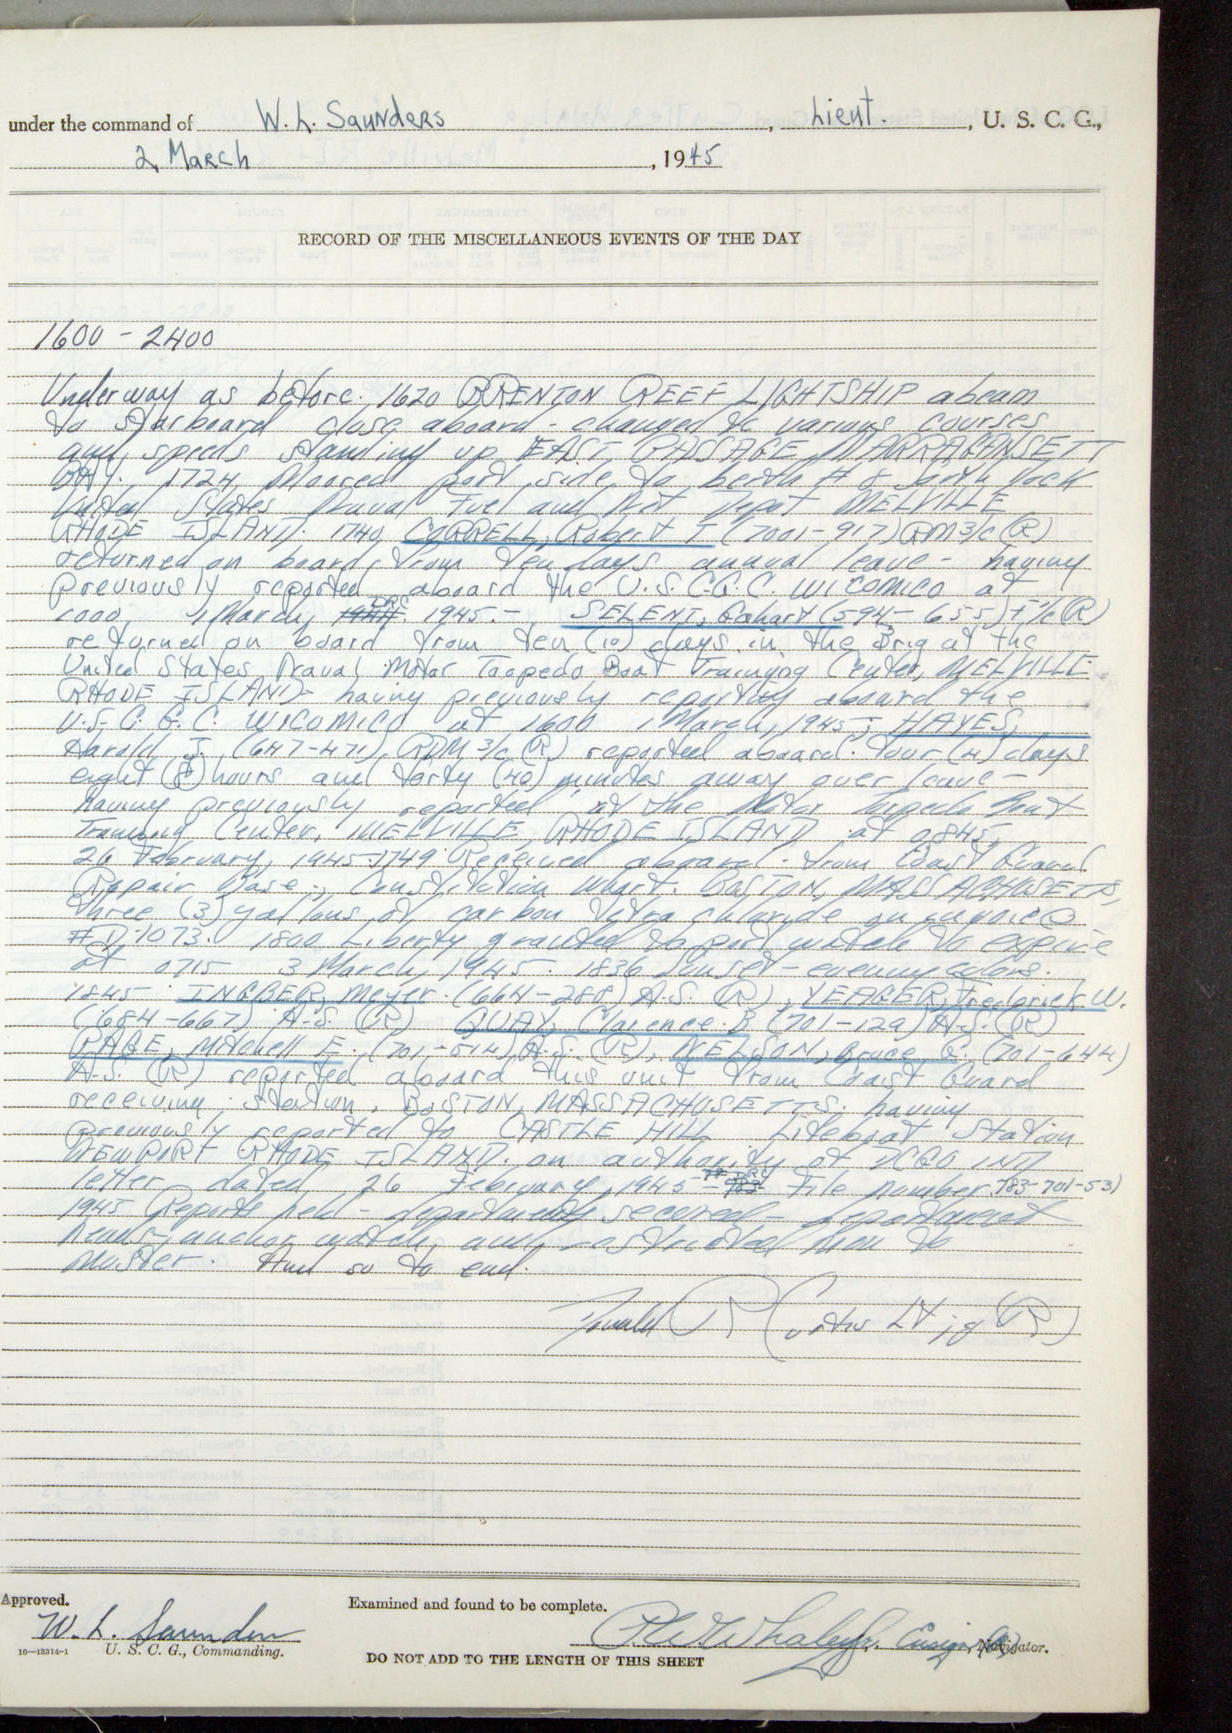 under the command of W. L. Saunders, Lieut., U. S. C. G.,
2 March, 1945
RECORD OF THE MISCELLANEOUS EVENTS OF THE DAY
1600 - 2400
Underway as before. 1620 BRENTON REEF LIGHTSHIP abeam
to starboard close aboard - changed to various courses
and speeds standing up EAST PASSAGE NARRAGANSETT
BAY. 1724 Moored port side to berth # 8 north dock
United States Naval Fuel and Net Depot MELVILLE
RHODE ISLAND. 1740 CORRELL, Robert T (7001-917) RM3/c (R)
returned on board from ten days annual leave - having
previously reported aboard the U.S.C.G.C. WICOMICO at
1000 1 March, 1945. - SELENT, (594-655) (R)
returned on board from ten (10) days in the Brig at the
United States Naval Motor Torpedo Boat Training Center, MELVILLE
RHODE ISLAND - having previously reported aboard the
U.S.C.G.C. WICOMICO at 1600 1 March, 1945; HAYES,
Harold J (647-471), RDM 3/c (R) reported aboard. four (4) days
eight (8) hours and forty (40) minutes away over leave -
having previously reported at the Motor Torpedo Boat
Training Center, MELVILLE, RHODE ISLAND at 0845,
26 February, 1945-1749 Received aboard - from Coast Guard
Repair Base, Constitution Wharf. BOSTON, MASSACHOSETTS,
three (3) gallons of carbon tytra chloride on invoice
# D-1073. 1800 Liberty granted to port watch to expire
at 0715 3 March, 1945. 1836 Sunset - evening colors.
1845 INGBER, Meyer. (664-288) A.S. (R), YEAGER, Frederick W.
(684-667) A.S. (R) QUAY, Clarence B (701-129) A.S. (R)
PAGE, Mitchell E. (701-514) A.S. (R), NELSON, Bruce G. (701-644)
A.S. (R) reported aboard this unit from Coast Guard
receiving station, BOSTON, MASSACHOSETTS. having
previously reported to CASTLE HILL Lifeboat Station
NEWPORT RHODE ISLAND. on authority of DCGO 1ND
letter dated 26 February, 1945 - File number 783-701-53)
1945 Reports held - departments secured - department
heads - anchor watch, and restricted men to
muster. And so to end.
Donald R Curtis Lt jg (R)
Approved. Examined and found to be complete.
W. L. Saunders Whaley Jr. Ensign, (R) Navigator.
16-13314-1 U. S. C. G., Commanding.
DO NOT ADD TO THE LENGTH OF THIS SHEET